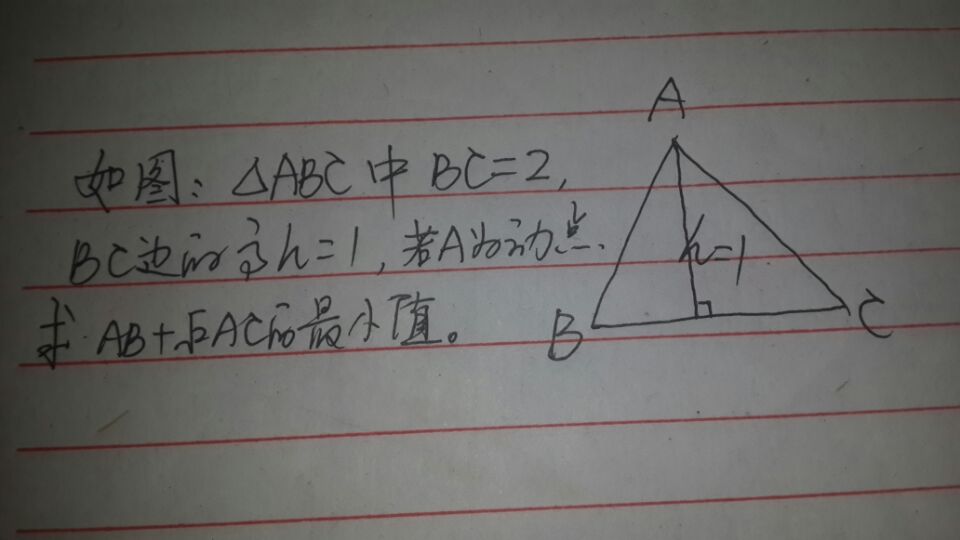 如图：△ABC中BC=2，
BC边的高h=1，若A为动点.
求AB+√2AC的最小值。
A
h=1
B
C